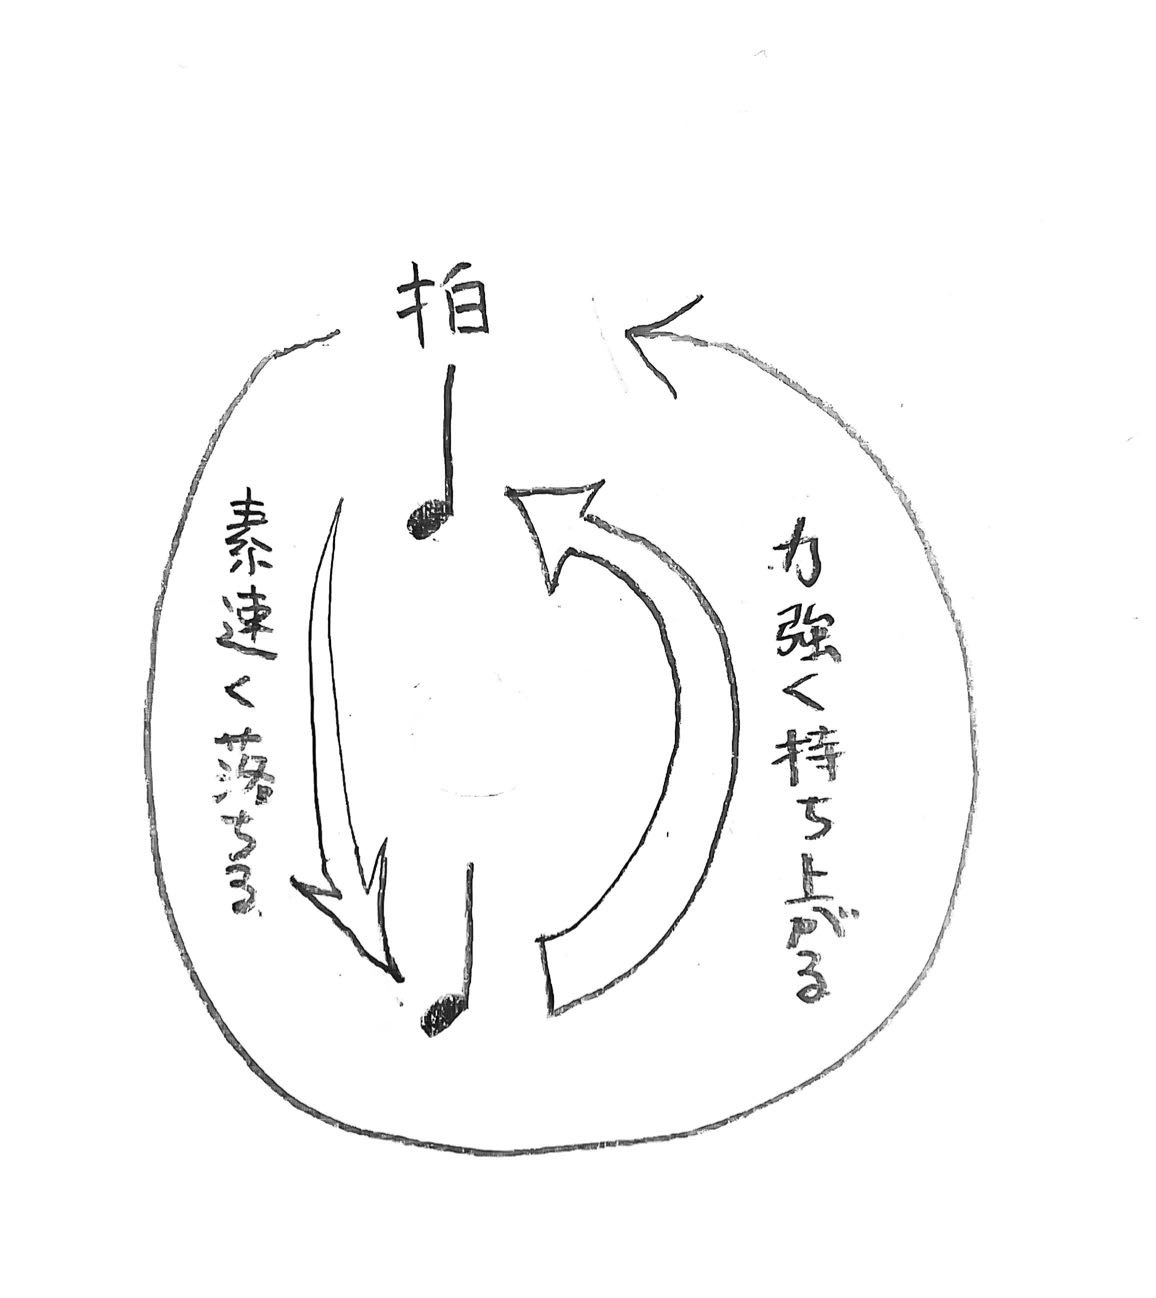 拍
素速く落ちる
力強く持ち上がる